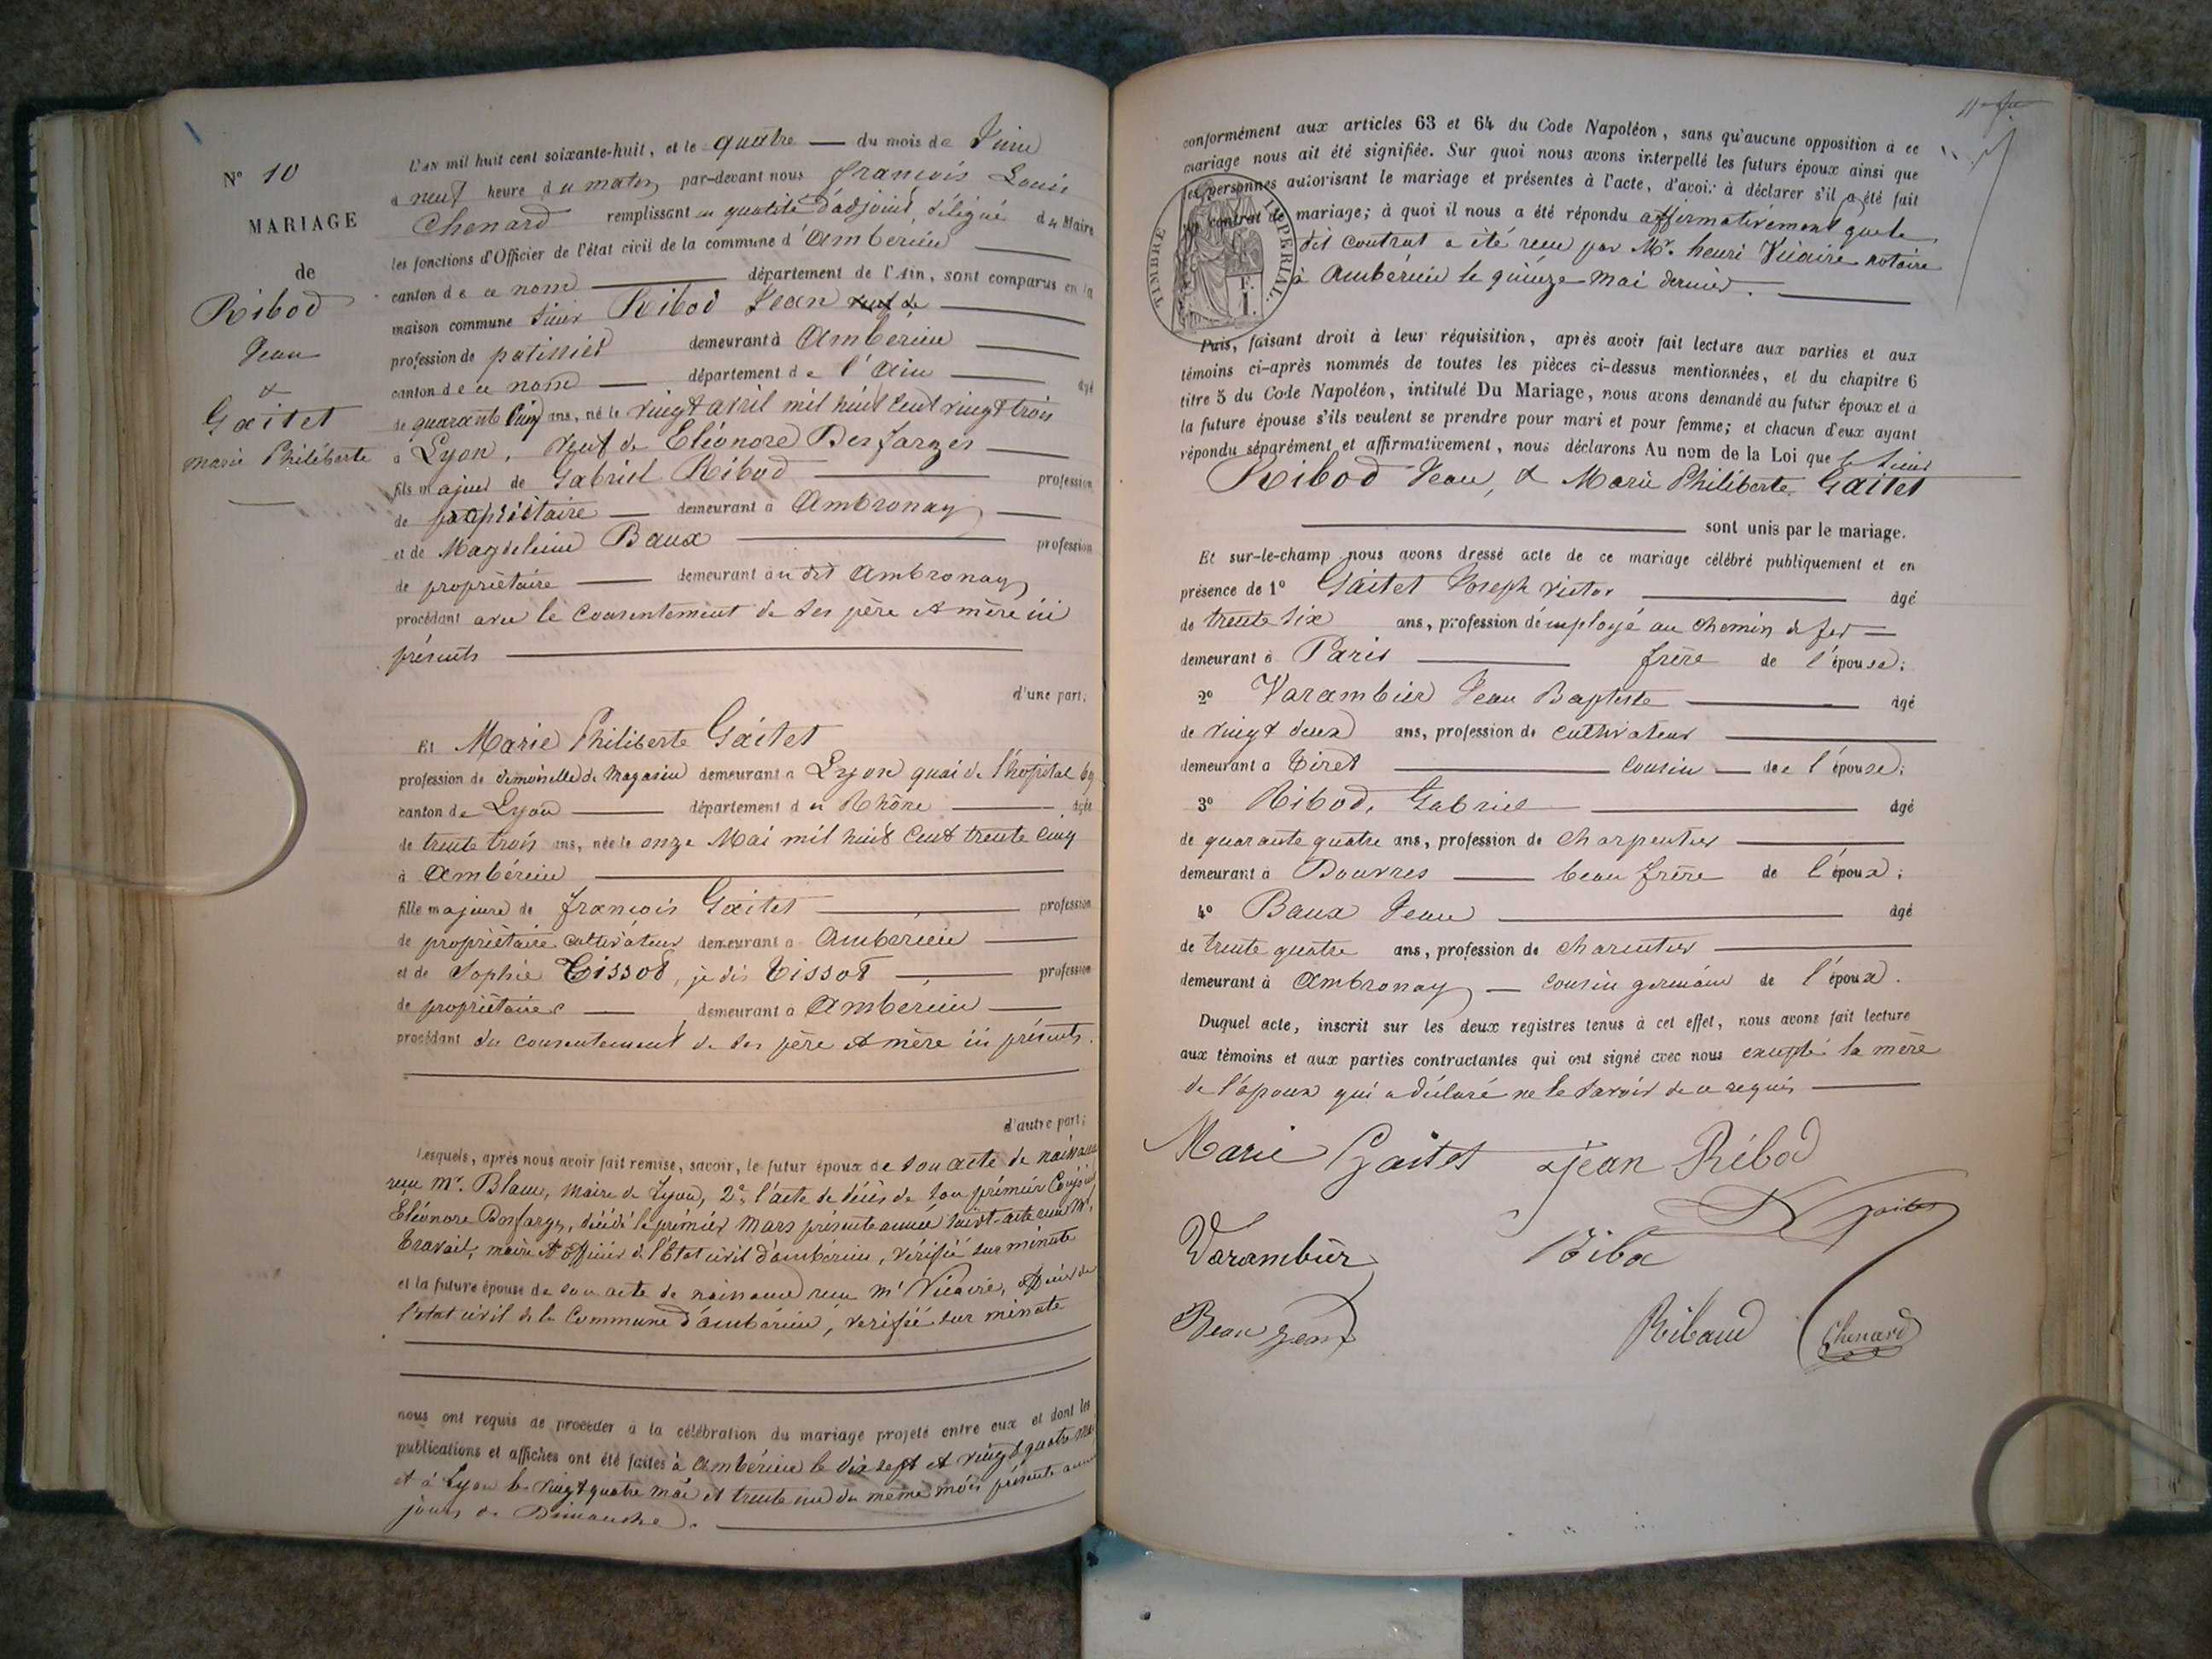 N° 10
MARIAGE
de
Ribod
Jean
&
Gaitet
Marie Philiberte
L'AN mil huit cent soixante-huit, et le quatre du mois de Juin
à neuf heure du matin par-devant nous François Louis
Chenard remplissant en qualité d'adjoint, délégué du Maire
les fonctions d'Officier de l'état civil de la commune d'Ambérieu
canton de ce nom département de l'Ain, sont comparus en la
maison commune sieur Ribod Jean veuf de
profession de patissier demeurant à Ambérieu
canton de ce nom département de l'Ain âgé
de quarante cinq ans, né le vingt avril mil huit cent vingt trois
à Lyon, veuf de Eléonore Desfarges
fils majeur de Gabriel Ribod profession
de propriétaire demeurant à Ambronay
et de Magdeleine Baux profession
de propriétaire demeurant au dit Ambronay
procédant avec le consentement de ses père et mère ici
présents
d'une part,
Et Marie Philiberte Gaitet
profession de demoiselle de Magasin demeurant à Lyon quai de l'hopital 69
canton de Lyon département du Rhône âgée
de trente trois ans, née le onze Mai mil huit cent trente cinq
à Ambérieu
fille majeure de François Gaitet profession
de propriétaire cultivateur demeurant à Ambérieu
et de Sophie Tissot, je dis Tissot profession
de propriétaires demeurant à Ambérieu
procédant du consentement de ses père et mère ici présents.
d'autre part;
Lesquels, après nous avoir fait remise, savoir, le futur époux de son acte de naissance
reçu Mr. Blanc, maire de Lyon, 2° l'acte de décès de son premier Conjoint,
Eléonore Desfarges, décédé le premier Mars présente année suivt. acte reçu Mr.
Travail, maire et officier de l'Etat civil d'ambérieu, vérifié sur minute
et la future épouse de son acte de naissance reçu Mr Vicaire, officier de
l'état civil de la Commune d'ambérieu, vérifié sur minute
nous ont requis de procéder à la célébration du mariage projeté entre eux et dont les
publications et affiches ont été faites à Ambérieu le dix sept et vingt quatre mai
et à Lyon les vingt quatre mai et trente un du même mois présente année
jours de Dimanche.
conformément aux articles 63 et 64 du Code Napoléon, sans qu'aucune opposition à ce
mariage nous ait été signifiée. Sur quoi nous avons interpellé les futurs époux ainsi que
les personnes autorisant le mariage et présentes à l'acte, d'avoir à déclarer s'il a été fait
un contrat de mariage; à quoi il nous a été répondu affirmativement que le
dit contrat a été reçu par Mr. henri Vicaire notaire
à Ambérieu le quinze Mai dernier.
TIMBRE IMPERIAL
F.
1.
Puis, faisant droit à leur réquisition, après avoir fait lecture aux parties et aux
témoins ci-après nommés de toutes les pièces ci-dessus mentionnées, et du chapitre 6
titre 5 du Code Napoléon, intitulé Du Mariage, nous avons demandé au futur époux et à
la future épouse s'ils veulent se prendre pour mari et pour femme; et chacun d'eux ayant
répondu séparément et affirmativement, nous déclarons Au nom de la Loi que le sieur
Ribod Jean, & Marie Philiberte Gaitet
sont unis par le mariage.
Et sur-le-champ nous avons dressé acte de ce mariage célébré publiquement et en
présence de 1° Gaitet Joseph Victor âgé
de trente six ans, profession d'employé au chemin de fer
demeurant à Paris frère de l'épouse;
2° Varambier Jean Baptiste âgé
de vingt deux ans, profession de cultivateur
demeurant à Tiret cousin de l'épouse;
3° Ribod, Gabriel âgé
de quarante quatre ans, profession de charpentier
demeurant à Douvres beau frère de l'époux;
4° Baux Jean âgé
de trente quatre ans, profession de charcutier
demeurant à Ambronay cousin germain de l'époux.
Duquel acte, inscrit sur les deux registres tenus à cet effet, nous avons fait lecture
aux témoins et aux parties contractantes qui ont signé avec nous excepté la mère
de l'époux qui a déclaré ne le savoir de ce requis
Marie Gaitet Jean Ribod
Gaitet
Varambier Riba
Beau Jean Ribaud Chenard